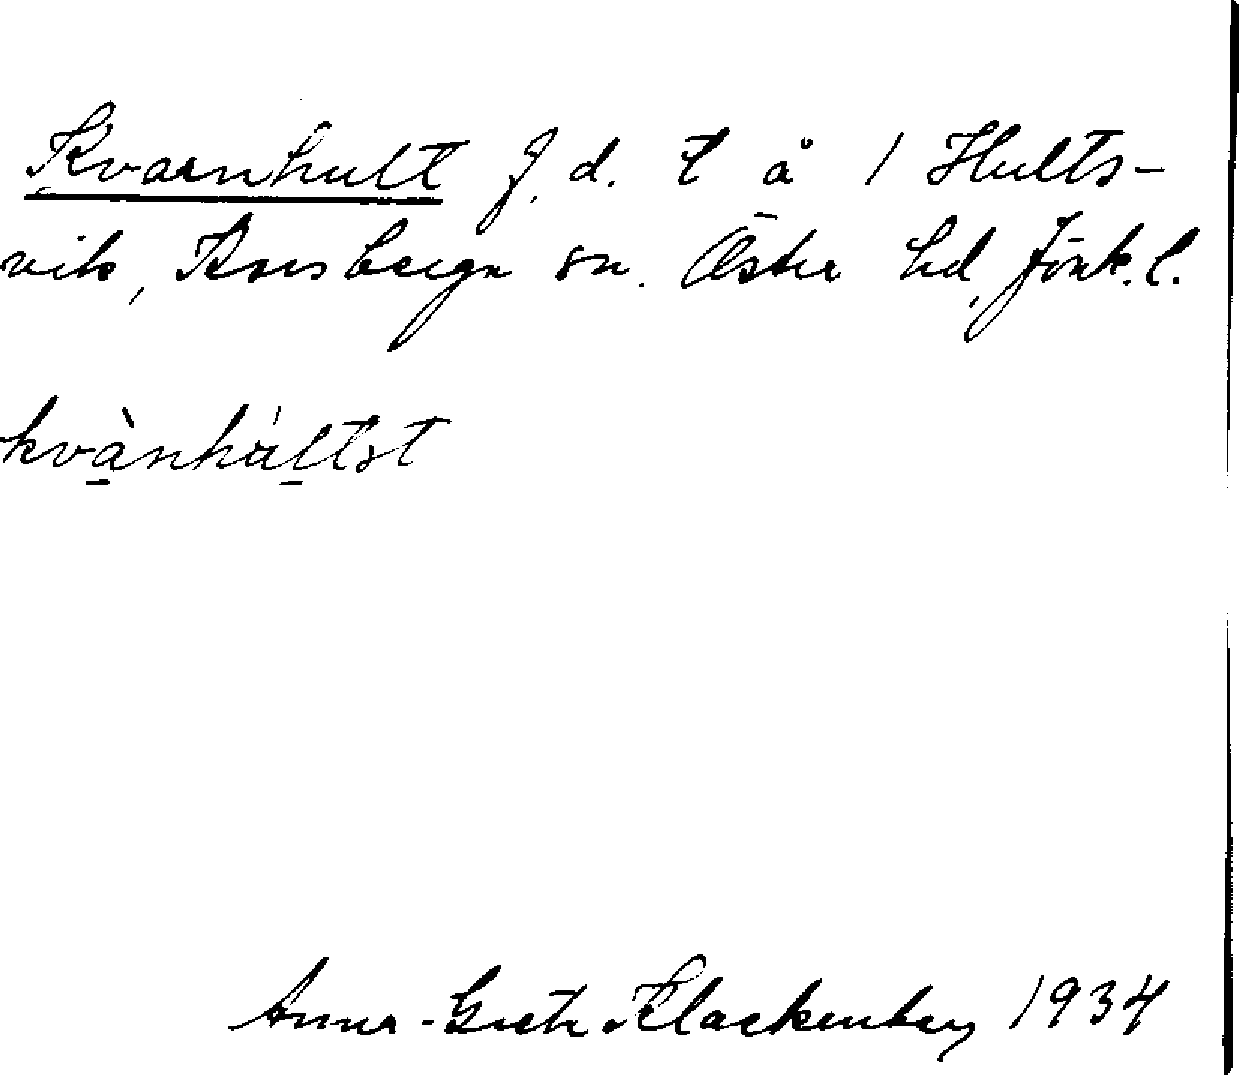 Kvarnhult f. d. t å 1 Hults-
vik, Korsberga sn. Östra hd, Jönk. l.
kvànhúltət
Anna-Greta Klackenberg 1934